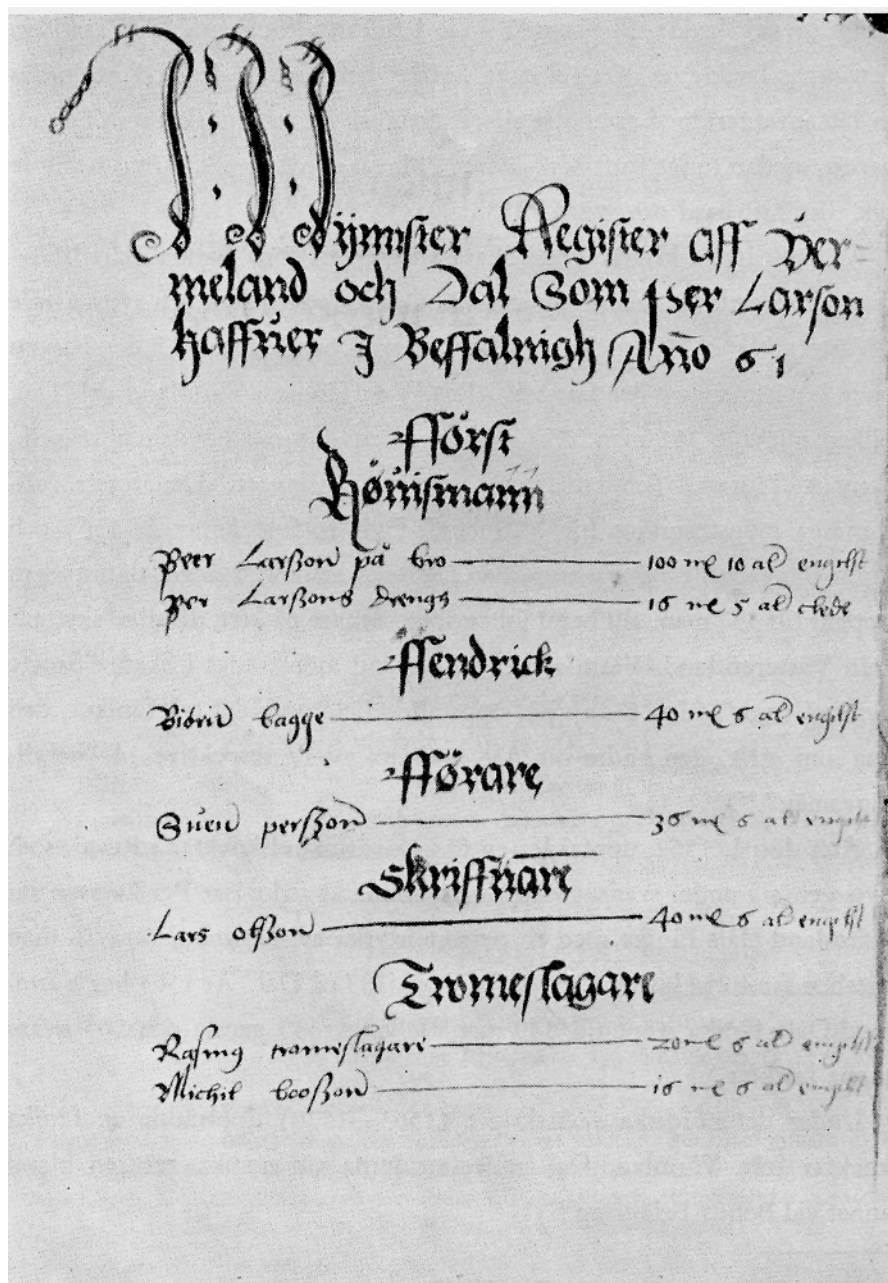 Mÿnnster Register aff Ver=
meland och Dal Som Per Larson
haffuer J Beffalnigh Año 61
fförst
Höuismann
Peer Larßon på bro 100 mk 10 al engilst
per Larßons drengs 16 mk 5 al clede
ffendrick
Biörn bagge 40 mk 6 al engilst
fförare
Suen perßzon 36 mk 6 al engilst
Skriffuare
Lars olßon 40 mk 6 al engilst
Tromeslagare
Rasmg tromeslagare 20 mk 6 al engilst
Michil booßzon 16 mk 6 al engilst